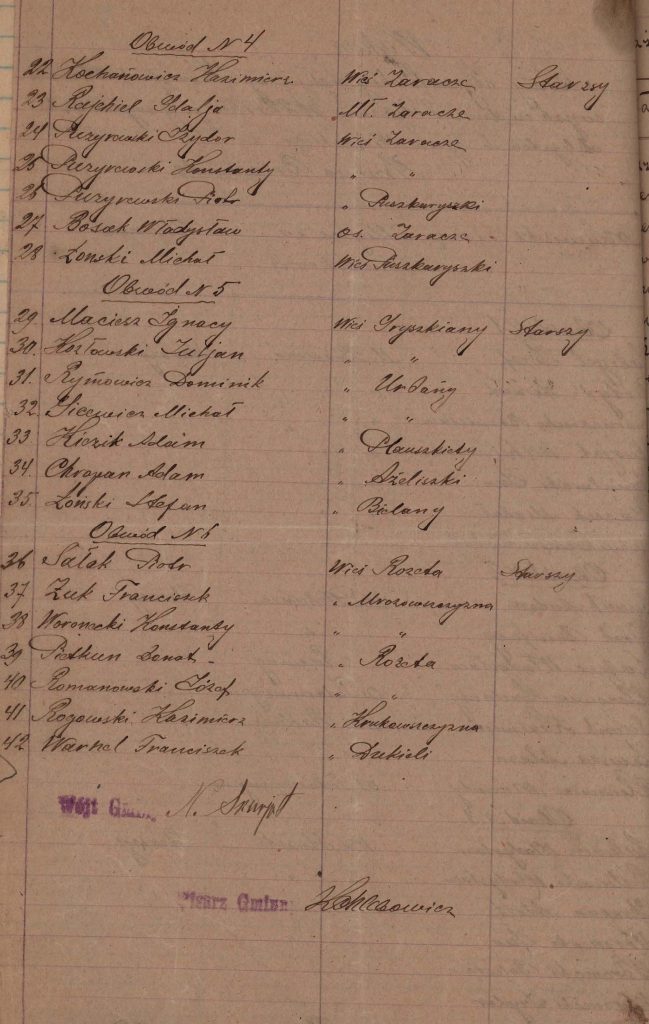 Obwód N 4
22 Kochanowicz Kazimierz Wieś Zaracze Starszy
23 Rajchiel Idalja Mł. Zaracze
24 Puzyrewski Izydor Wieś Zaracze
25 Puzyrewski Konstanty " "
26 Puzyrewski Piotr " Puszkaryszki
27 Bosak Władysław os. Zaracze
28 Łonski Michał Wieś Puszkaryszki
Obwód N 5
29 Maciesz Ignacy Wieś Gryszkiany Starszy
30. Kozłowski Juljan " "
31. Rymowicz Dominik " Urbany
32. Michał " "
33 Adam "
34. Chrapan Adam " Ażeliszki
35. Łoński Stefan " Bielany
Obwód N 6
36 Sałak Piotr Wieś Rozeta Starszy
37 Żuk Franciszek " Mrozowszczyzna
38 Woronecki Konstanty " "
39 Pietkun Donat " Rozeta
40 Romanowski Józef " "
41 Rogowski Kazimierz " Krukowszczyzna
42 Warkel Franciszek " Dzekieli
Wójt Gminy N.
Pisarz Gminny